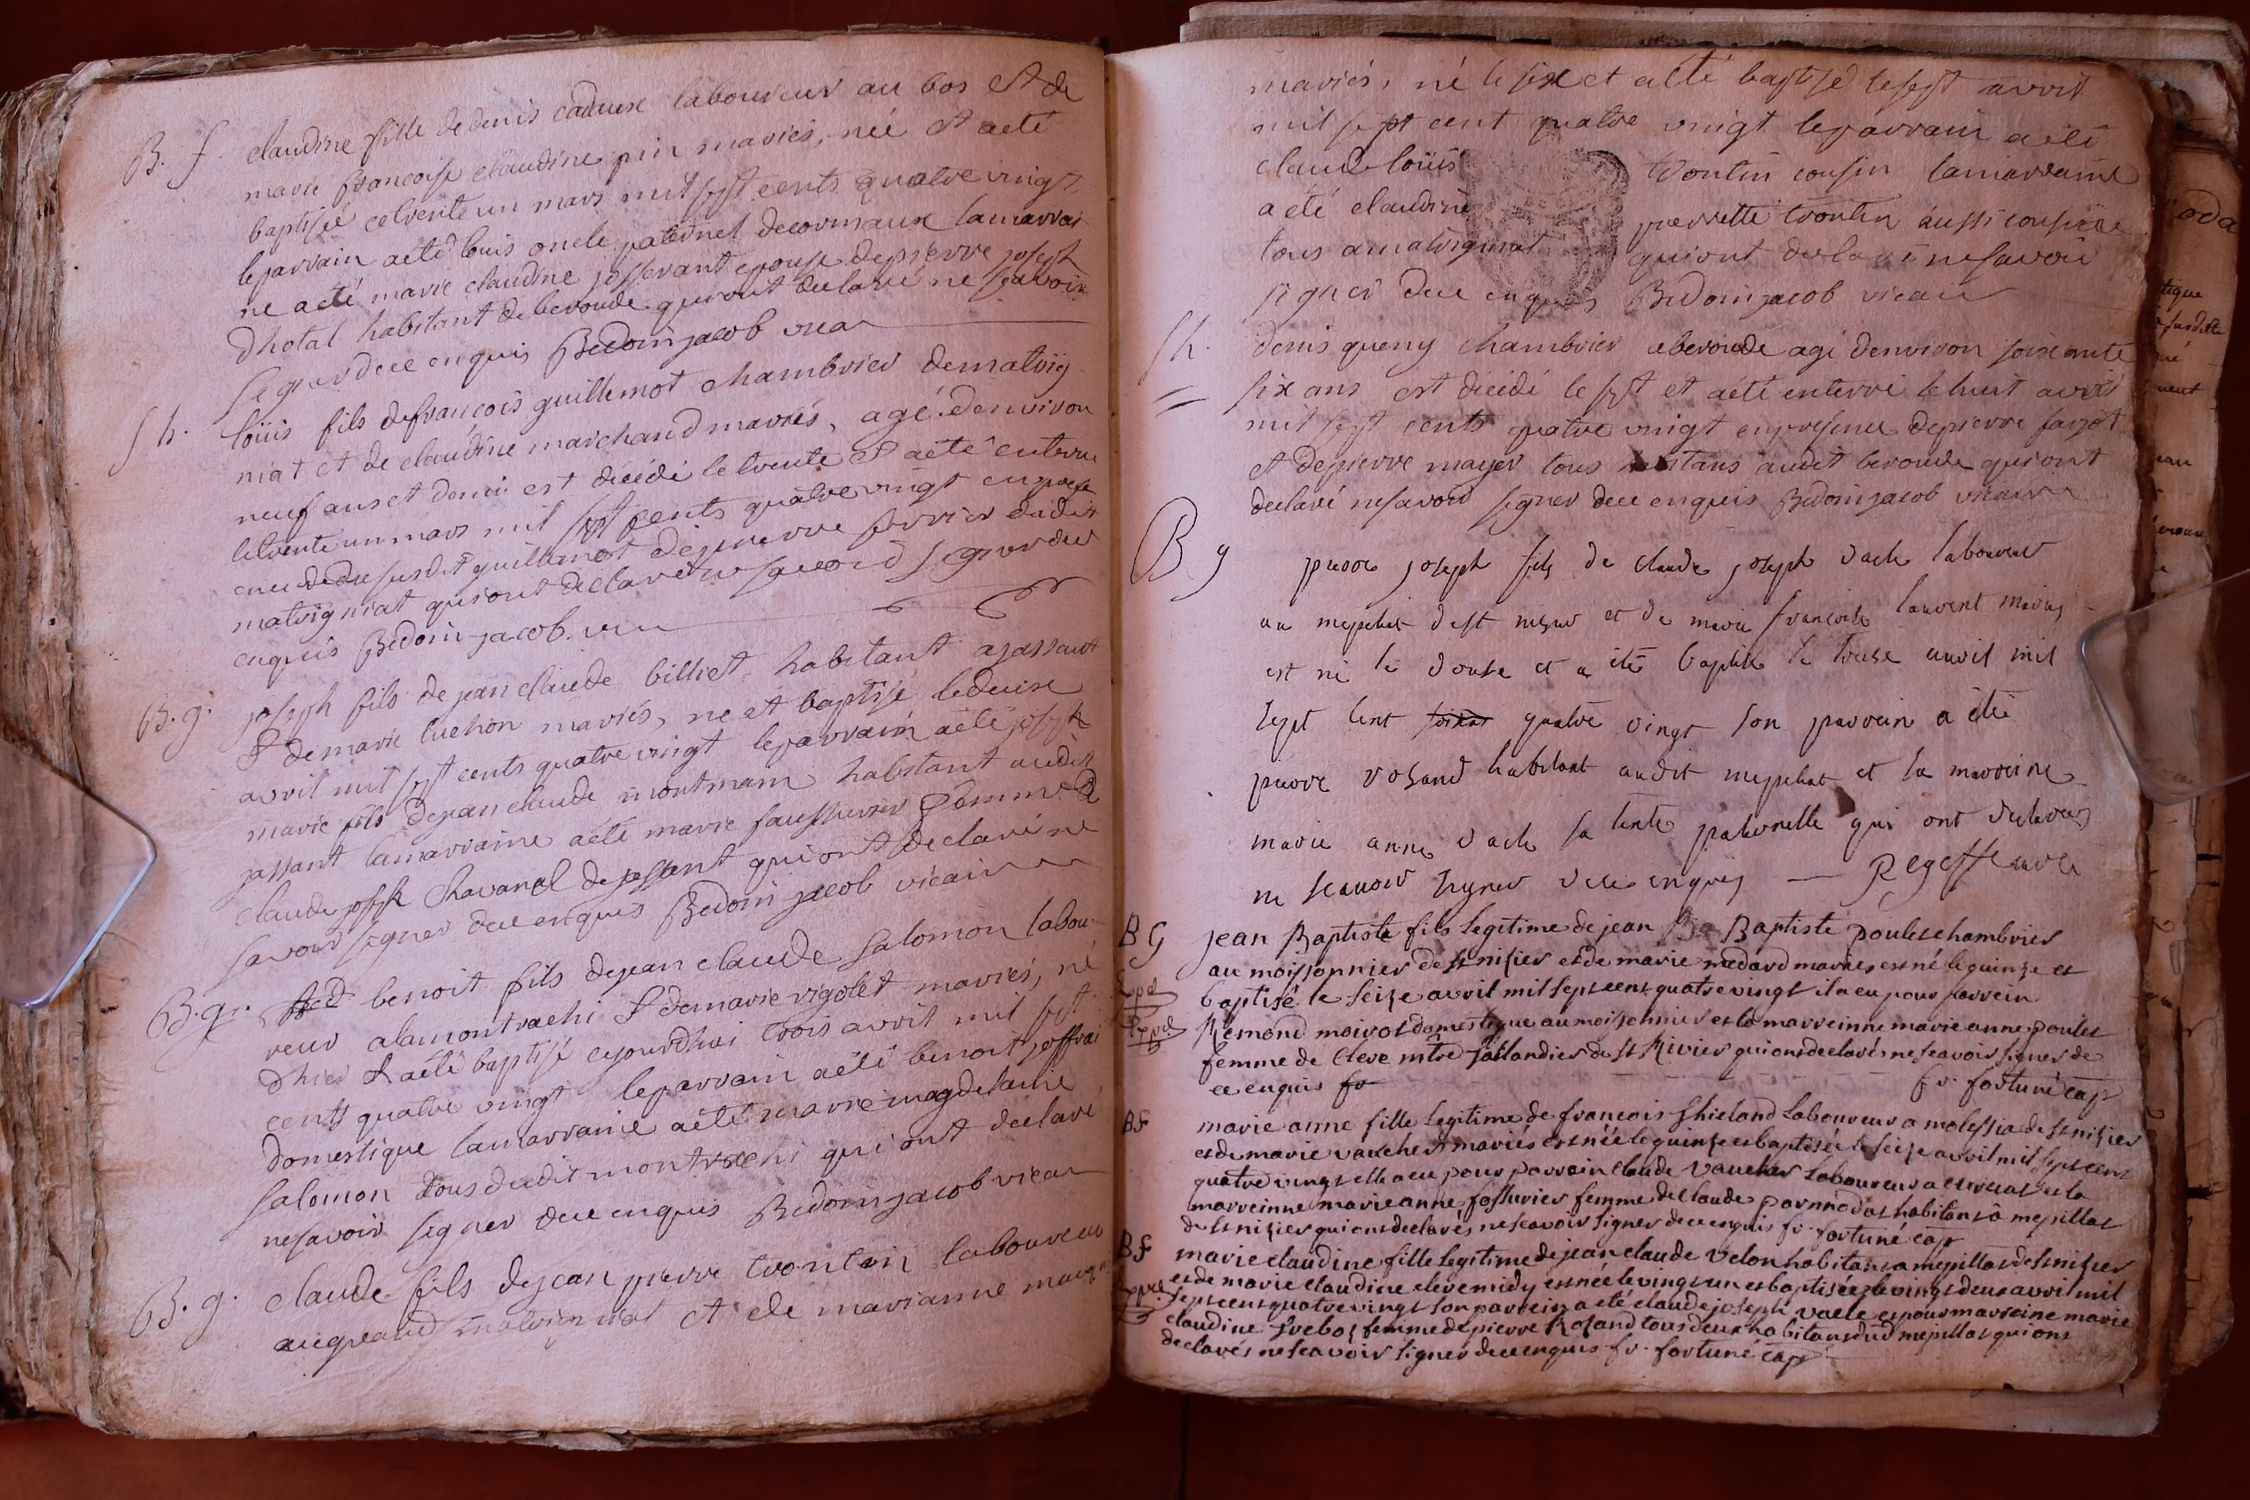 B. f. claudine fille de denis cadoux laboureur au bos et de
marie francoise claudine pin mariés, née et a eté
baptisée le trente un mars mil sept cents quatre vingt,
le parrain a eté louis oncle paternel de cormaux la marrai
ne a eté marie claudine josserant epouse de pierre joseph
d'hotal habitant de beroude qui ont declaré ne scavoir
signer de ce enquis Bedoin jacob vicai
S h. loüis fils de francois guillemot chambrier de malvig
niat et de claudine marchand mariés, agé d'environ
neuf ans et demi est décédé le trente et a eté enterré
le trente un mars mil sept cents quatre vingt en prese
ence du susdit guillemot de pierre ferrier dudit
malvigniat qui ont declaré ne scavoir signer de ce
enquis Bedoin jacob vicai
B. g. joseph fils de jean claude billiet habitant a jassant
et de marie luchon mariés, né et baptisé le deuxe
avril mil sept cents quatre vingt le parrain a eté joseph
marie fils de jean claude montmain habitant audit
jassant la marraine a eté marie faussurier femme de
claude joseph chavanel de jassant qui ont declaré ne
savoir signer de ce enquis Bedoin jacob vicaire
B. g. benoit fils de jean claude salomon labou
reur a la montrachi et de marie vigolet mariés, né
d'hier et a eté baptisé ce jourdhui trois avril mil sept
cents quatre vingt le parrain a eté benoit joffrai
domestique la marraine a eté marie magdelaine
salomon tous dudit montrachi qui ont declaré
ne savoir signer de ce enquis Bedoin jacob vicai
B. g. claude fils de jean pierre trontin laboureur
au grand malvigniat et de marianne
mariés, né le six et a eté baptisé le sept avril
mil sept cent quatre vingt le parrain a eté
claude loüis trontin cousin la marraine
a eté claudine pierrette trontin aussi cousine
tous a malvigniat qui ont declaré ne savoir
signer de ce enquis Bedoin jacob vicai
S h. denis queny chambrier a beroude agé d'environ soixante
six ans est décédé le sept et a eté enterré le huit avril
mil sept cents quatre vingt en presence de pierre farjot
et de pierre mayer tous audit beroude qui ont
declaré ne savoir signer de ce enquis Bedoin jacob vicaire
B g pierre joseph fils de claude joseph vach laboureur
au mepilat de st nizier et de marie francoise laurent mariés
est né le douse et a été baptisé le treise avril mil
sept cent quatre vingt son parrein a été
pierre rosand habitant audit mepilat et la marreine
marie anne vach sa tente paternelle qui ont declarés
ne scavoir signer de ce enquis
B G jean Baptiste fils legitime de jean Baptiste poulet chambrier
au moissonnier de st nisier et de marie medard mariés est né le quinze et
baptisé le seize avril mil sept cent quatre vingt il a eu pour parrein
Remond moivot domestique au moissonnier et la marreinne marie anne poulet
femme de Cleve mtre taillandier de st Nizier qui ont declarés ne scavoir signer de
ce enquis fr fr. fortuné cap
B F marie anne fille legitime de francois Thieland Laboureur a molessia de st nizier
et de marie vaucher mariés est née le quinze et baptisée le seize avril mil sept cent
quatre vingt elle a eu pour parrain Claude vaucher Laboureur a et la
marreinne marie anne fossurier femme de Claude pornnodat habitant a mepillat
de st nizier qui ont declarés ne scavoir signer de ce enquis fr. fortuné cap
B F marie claudine fille legitime de jean claude velon habitant a mepillat de st nizier
et de marie claudine clere midy est née le vingt un et baptisée le vingt deux avril mil
sept cent quatre vingt son parrein a eté claude joseph vacle et pour marreine marie
claudine trebos femme de pierre Rosand tous deux habitans dud mepillat qui ont
declarés ne scavoir signer de ce enquis fr. fortuné cap